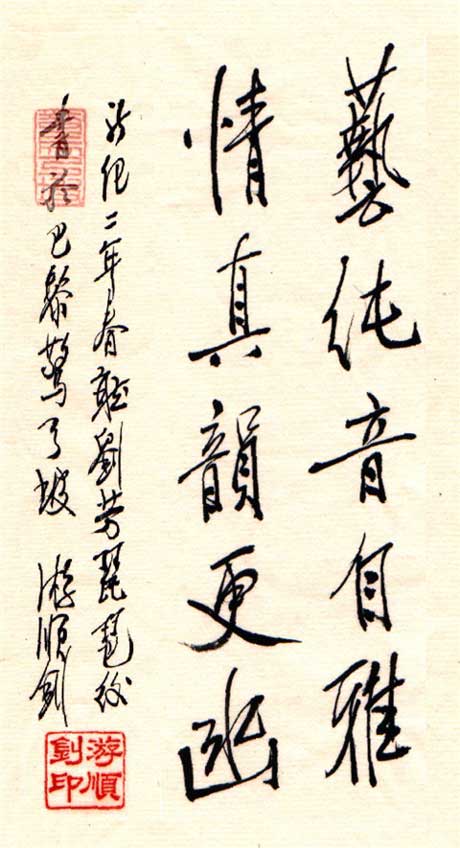 藝純音自雅
情真韻更幽
新紀二年春聽劉芳琵琶後
書於巴黎驚弓坡 游順釗
游順
釗印